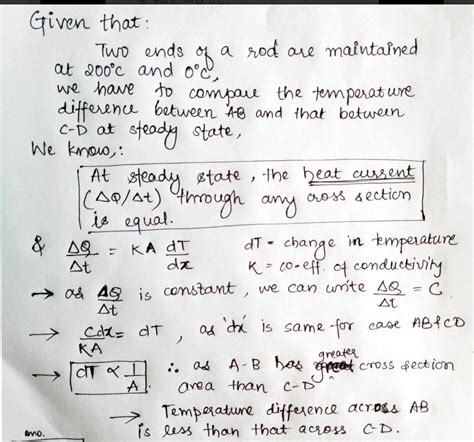 Given that:
Two ends of a rod are maintained
at 200°c and 0°c,
we have to compare the temperature
difference between AB and that between
C-D at steady state,
We know,:
At steady state, the heat current
(ΔQ/Δt) through any cross section
is equal.
& ΔQ/Δt = KA dT/dx dT - change in temperature
K = co-eff. of conductivity
→ as ΔQ/Δt is constant, we can write ΔQ/Δt = C.
→ Cdx/KA = dT, as 'dx' is same for case AB & CD
→ dT ∝ 1/A ∴ as A-B has greater cross section
area than C-D
→ Temperature difference across AB
is less than that across C-D.
ans.